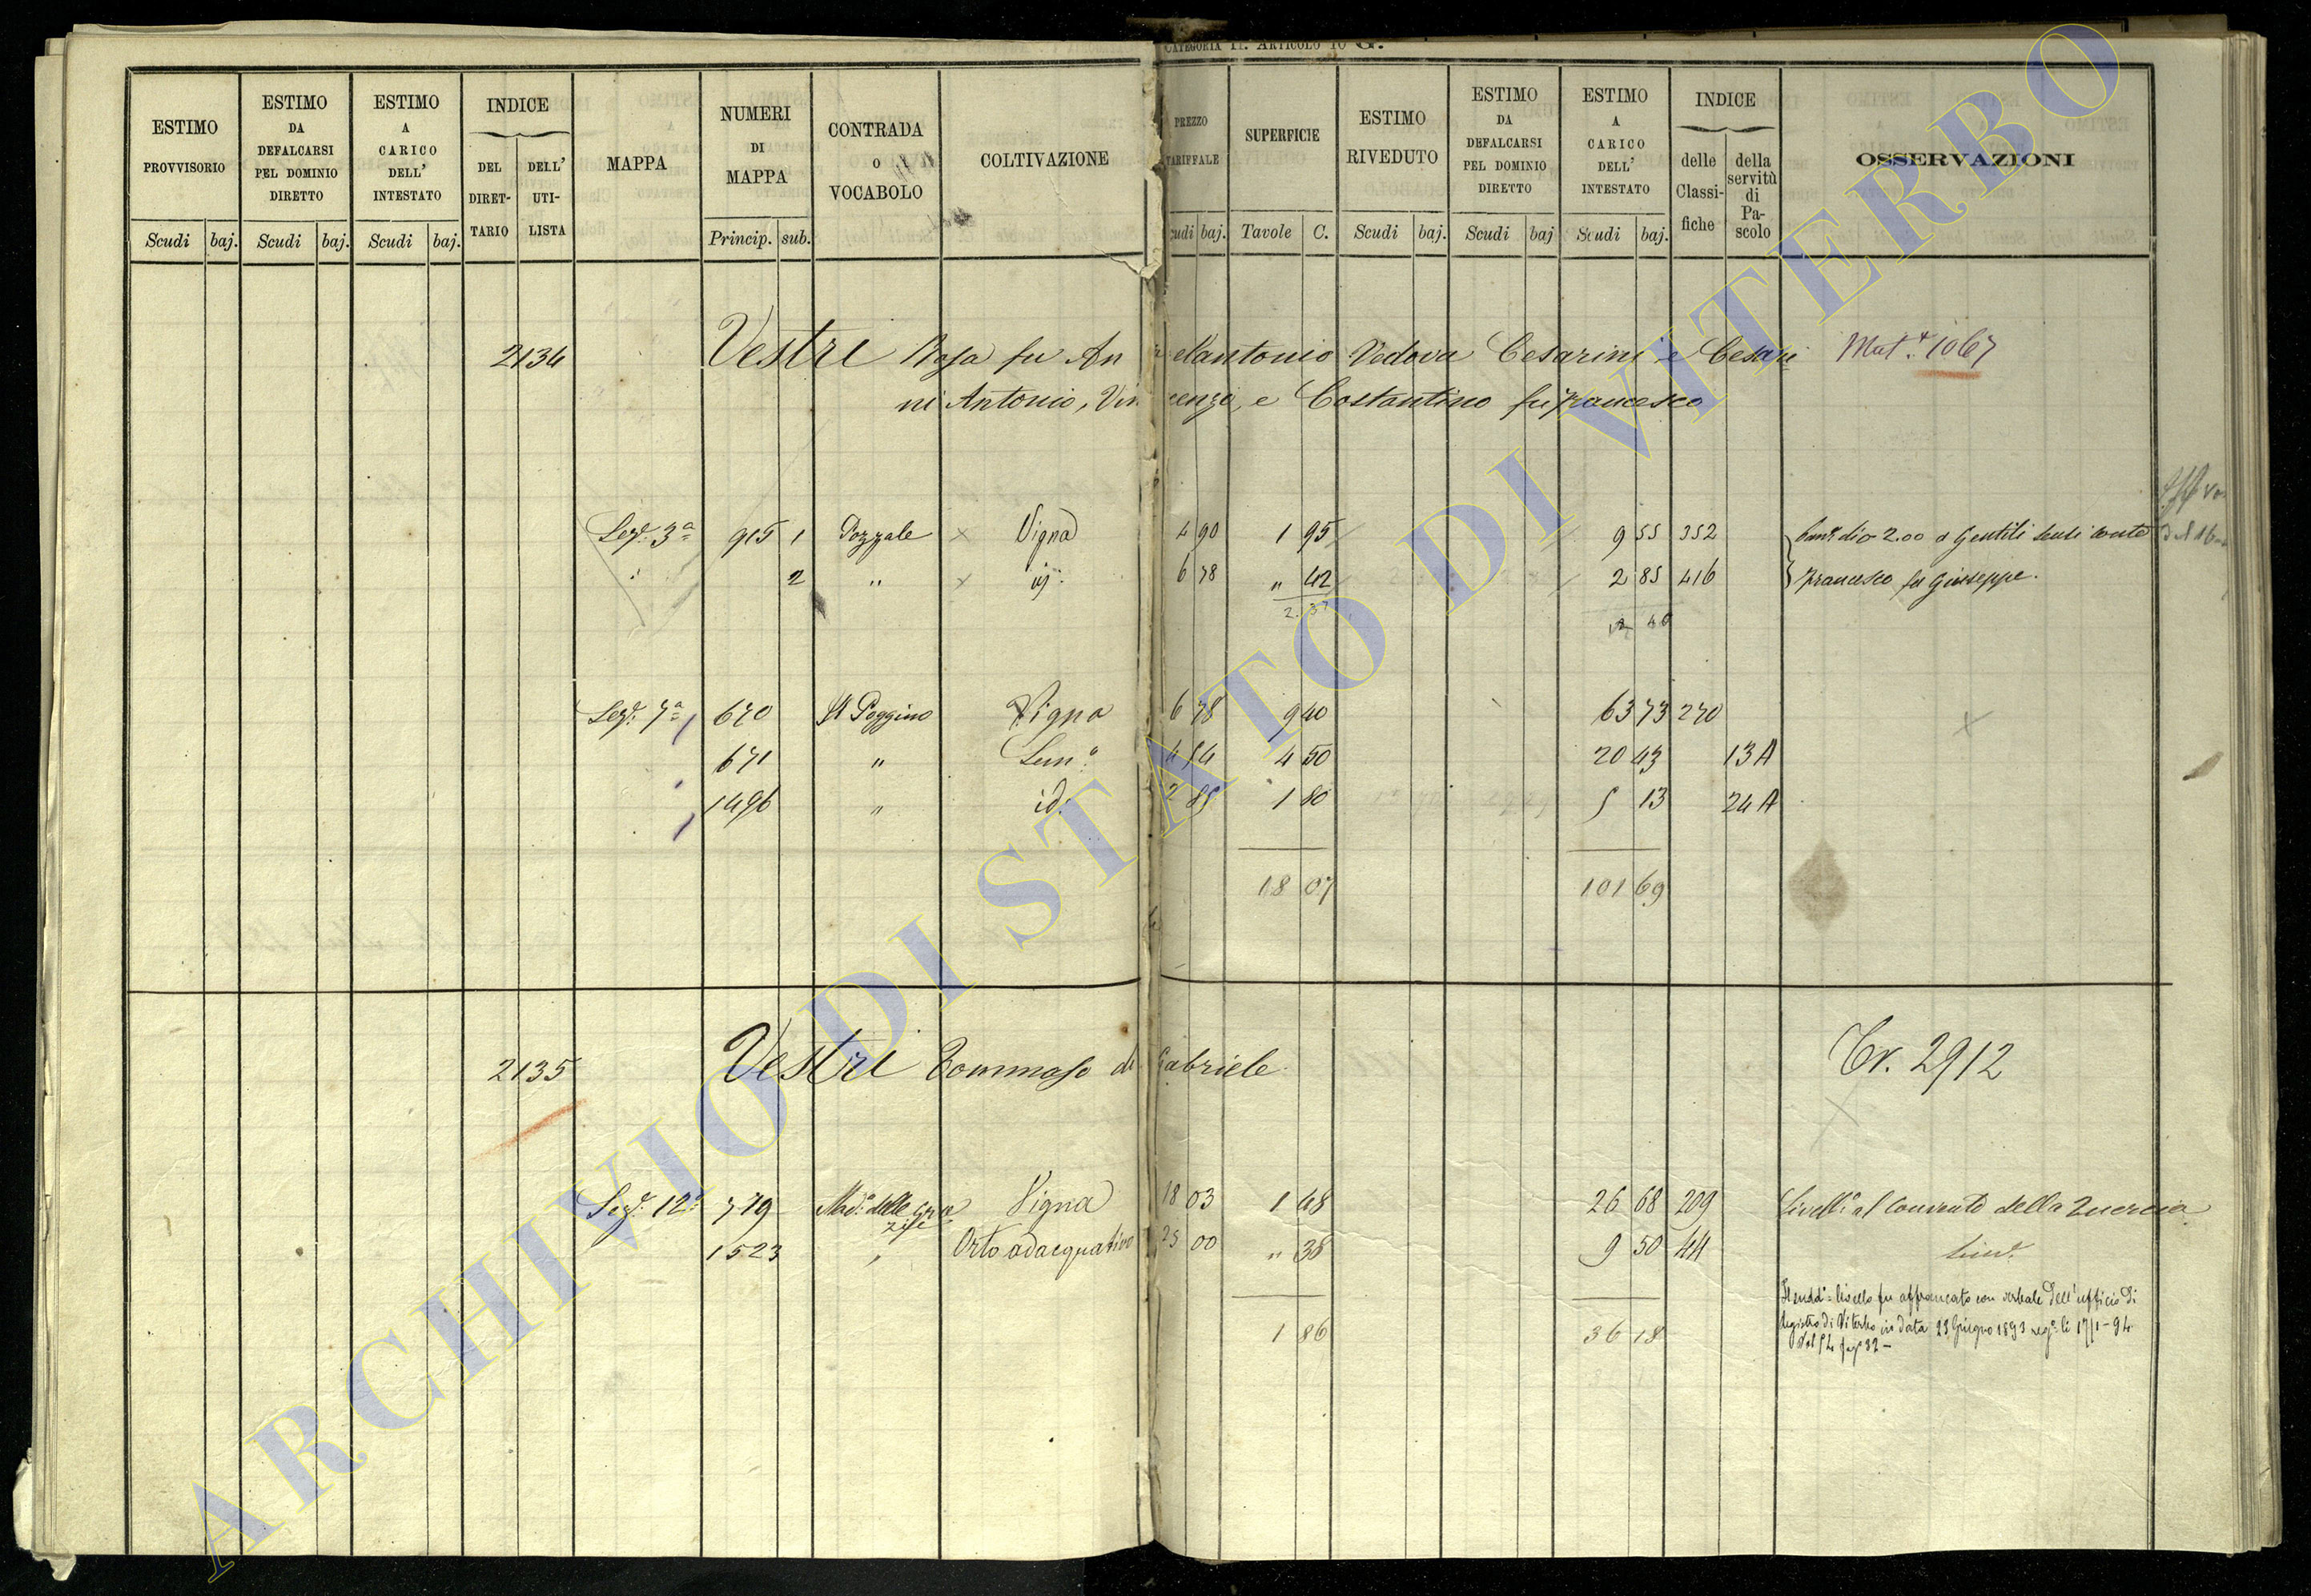 CATEGORIA II. ARTICOLO 10 G.
ESTIMO PROVVISORIO
ESTIMO DA DEFALCARSI PEL DOMINIO DIRETTO
ESTIMO A CARICO DELL' INTESTATO
INDICE
DEL DIRET-TARIO
DELL' UTI-LISTA
MAPPA
NUMERI DI MAPPA
CONTRADA O VOCABOLO
COLTIVAZIONE
PREZZO TARIFFALE
SUPERFICIE
ESTIMO RIVEDUTO
ESTIMO DA DEFALCARSI PEL DOMINIO DIRETTO
ESTIMO A CARICO DELL' INTESTATO
INDICE
delle Classi-fiche
della servitù di Pa-scolo
OSSERVAZIONI
Scudi baj. Scudi baj. Scudi baj. Princip. sub. cudi baj. Tavole C. Scudi baj. Scudi baj Scudi baj.
2134 Vestri Rosa fu An elantonio Vedova Cesarini e Cesari Mut. 1067
ni Antonio, Vin cenzo, e Costantino fu Francesco
Sez. 3a 915 1 Pozzale Vigna 4 90 1 95 9 55 352 2.00 a Gentili conte
2 " 6 78 " 42 2 85 416 Francesco fu Giuseppe.
2. 37 12 40
Sez. 7a 670 Il Poggino Vigna 6 78 9 40 63 73 270
671 " Sem.o 4 54 4 50 20 43 13 A
1496 " id. 2 85 1 80 5 13 24 A
18 07 101 69
2135 Vestri Tommaso di Gabriele Tr. 2912
Sez. 12a 779 Mad.a delle Gra Vigna 18 03 1 48 26 68 209 Livell.o al Convento della Quercia
zie
1523 " Orto adacquativo 25 00 " 38 9 50 44
1 86 36 18
livello fu affrancato con verbale dell'ufficio di
registro di Viterbo in data 23 Giugno 1893 reg.o li 17/1-94
Vol 54 fog.o 32 -
ARCHIVIO DI STATO DI VITERBO